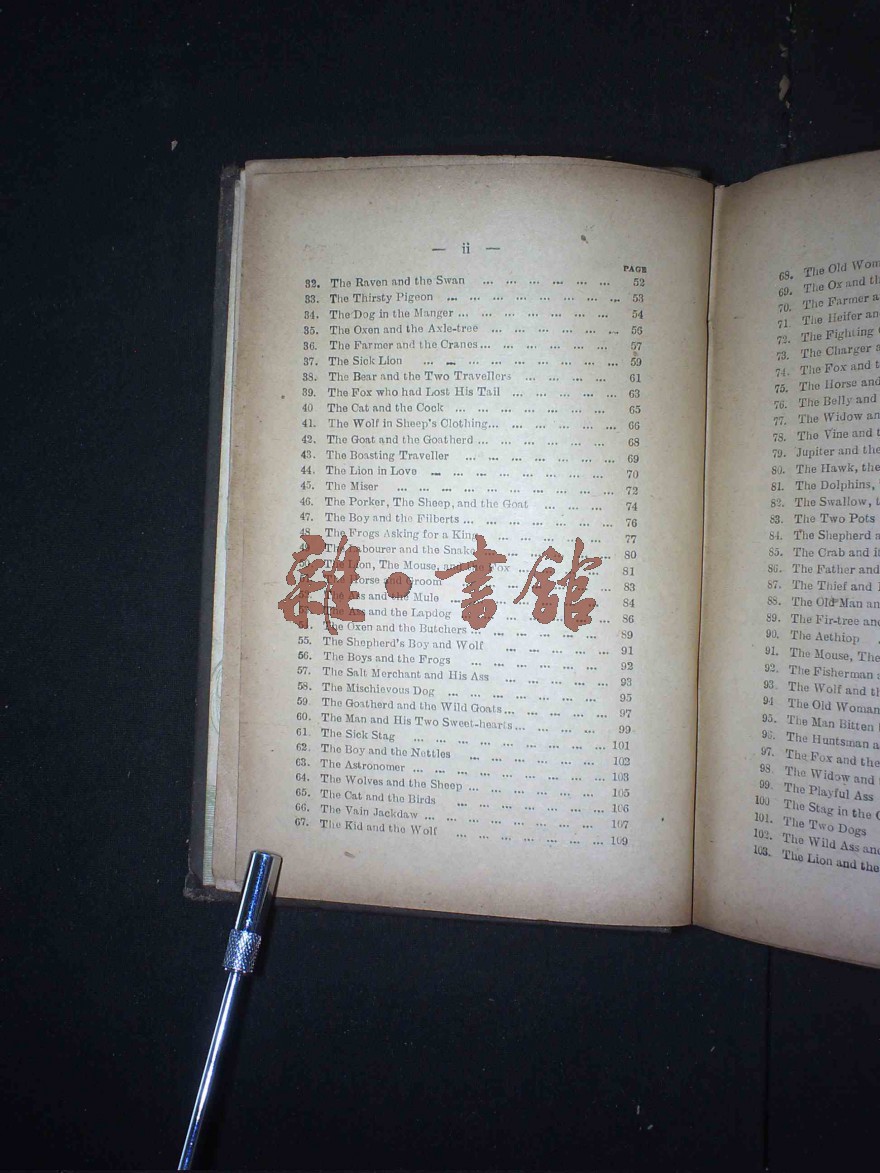 — ii —
PAGE
32. The Raven and the Swan ... ... ... ... ... ... 52
33. The Thirsty Pigeon ... ... ... ... ... ... ... ... 53
34. The Dog in the Manger ... ... ... ... ... ... ... 54
35. The Oxen and the Axle-tree ... ... ... ... ... ... 56
36. The Farmer and the Cranes ... ... ... ... ... ... 57
37. The Sick Lion ... ... ... ... ... ... ... ... 59
38. The Bear and the Two Travellers ... ... ... ... 61
39. The Fox who had Lost His Tail ... ... ... ... ... 63
40 The Cat and the Cock ... ... ... ... ... ... ... 65
41. The Wolf in Sheep's Clothing... ... ... ... ... ... 66
42. The Goat and the Goatherd ... ... ... ... ... ... 68
43. The Boasting Traveller ... ... ... ... ... ... ... 69
44. The Lion in Love ... ... ... ... ... ... ... ... 70
45. The Miser ... ... ... ... ... ... ... ... ... ... 72
46. The Porker, The Sheep, and the Goat ... ... ... 74
47. The Boy and the Filberts ... ... ... ... ... ... ... 76
48. The Frogs Asking for a King ... ... ... ... ... 77
The Labourer and the Snake ... ... ... ... ... 80
The Lion, The Mouse, and the Fox ... ... ... ... 81
Horse and Groom ... ... ... ... ... ... 83
The Ass and the Mule ... ... ... ... ... ... ... 84
The Ass and the Lapdog ... ... ... ... ... ... 86
54. The Oxen and the Butchers ... ... ... ... ... ... 89
55. The Shepherd's Boy and Wolf ... ... ... ... ... 91
56. The Boys and the Frogs ... ... ... ... ... ... 92
57. The Salt Merchant and His Ass ... ... ... ... ... 93
58. The Mischievous Dog ... ... ... ... ... ... 95
59. The Goatherd and the Wild Goats... ... ... ... ... 97
60. The Man and His Two Sweet-hearts ... ... ... ... 99
61. The Sick Stag ... ... ... ... ... ... ... ... 101
62. The Boy and the Nettles ... ... ... ... ... ... 102
63. The Astronomer ... ... ... ... ... ... ... ... 103
64. The Wolves and the Sheep ... ... ... ... ... ... 105
65. The Cat and the Birds ... ... ... ... ... ... ... 106
66. The Vain Jackdaw ... ... ... ... ... ... ... ... 107
67. The Kid and the Wolf ... ... ... ... ... ... ... 109
雜·書館
68. The Old Wom
69. The Ox and th
70. The Farmer a
71. The Heifer an
72. The Fighting
73. The Charger a
74. The Fox and t
75. The Horse and
76. The Belly and
77. The Widow an
78. The Vine and t
79. Jupiter and the
80. The Hawk, the
81. The Dolphins,
82. The Swallow, t
83. The Two Pots
84. The Shepherd a
85. The Crab and it
86. The Father and
87. The Thief and
88. The Old Man an
89. The Fir-tree and
90. The Aethiop
91. The Mouse, The
92. The Fisherman
93. The Wolf and th
94 The Old Woman
95. The Man Bitten
96. The Huntsman a
97. The Fox and the
98. The Widow and
99. The Playful Ass
100 The Stag in the
101. The Two Dogs
102. The Wild Ass and
103. The Lion and the